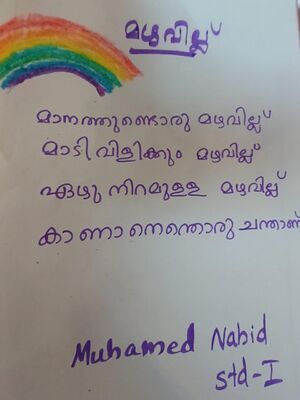 മഴവില്ല്
മാനത്തുണ്ടൊരു മഴവില്ല്
മാടി വിളിക്കും മഴവില്ല്
ഏഴു നിറമുള്ള മഴവില്ല്
കാണാനെന്തൊരു ചന്താണ്
Muhamed Nahid
std-I